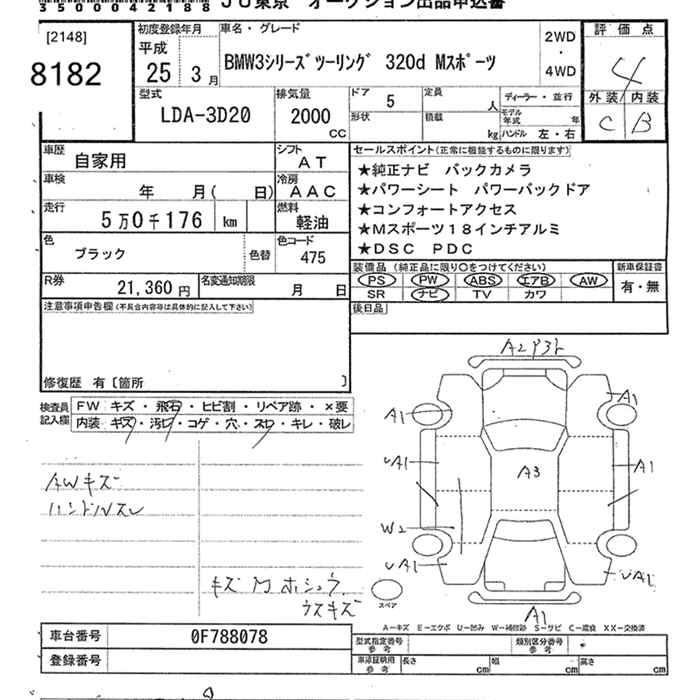 3500042188 JU東京 オークション出品申込書
[2148]
8182
初度登録年月
平成
25年 3月
車名・グレード
BMW3シリーズツーリング 320d Mスポーツ
2WD
・
4WD
評価点
4
外装 内装
C B
型式
LDA-3D20
排気量
2000
CC
ドア 5
形状
定員 人
積載 kg
ディーラー・並行
モデル年式 年
ハンドル 左・右
車歴 自家用
シフト AT
車検 年 月( 日)
冷房 AAC
走行 5万0千176 km
燃料 軽油
色 ブラック
色替
色コード 475
R券 21,360円
名変通知期限 月 日
セールスポイント(正常に機能するものに限ります)
★純正ナビ バックカメラ
★パワーシート パワーバックドア
★コンフォートアクセス
★Mスポーツ18インチアルミ
★DSC PDC
装備品(純正品に限り○をつけてください)
PS PW ABS エアB AW
SR ナビ TV カワ
新車保証書
有・無
後日品
注意事項申告欄(不具合内容等は具体的に記入して下さい)
修復歴 有〔箇所 〕
検査員記入欄
FW キズ・飛石・ヒビ割・リペア跡・×要
内装 キズ・汚レ・コゲ・穴・スレ・キレ・破レ
AWキズ
ハンドルスレ
キズ
ウスキズ
A2
A1
A1
UA1
A1
A3
W2
UA1
UA1
A1
スペア
A-キズ E-エクボ U-凹み W-補修跡 S-サビ C-腐食 XX-交換済
車台番号 0F788078
登録番号
型式指定番号 参考
類別区分番号 参考
車庫証明用 参考
長さ cm
幅 cm
高さ cm